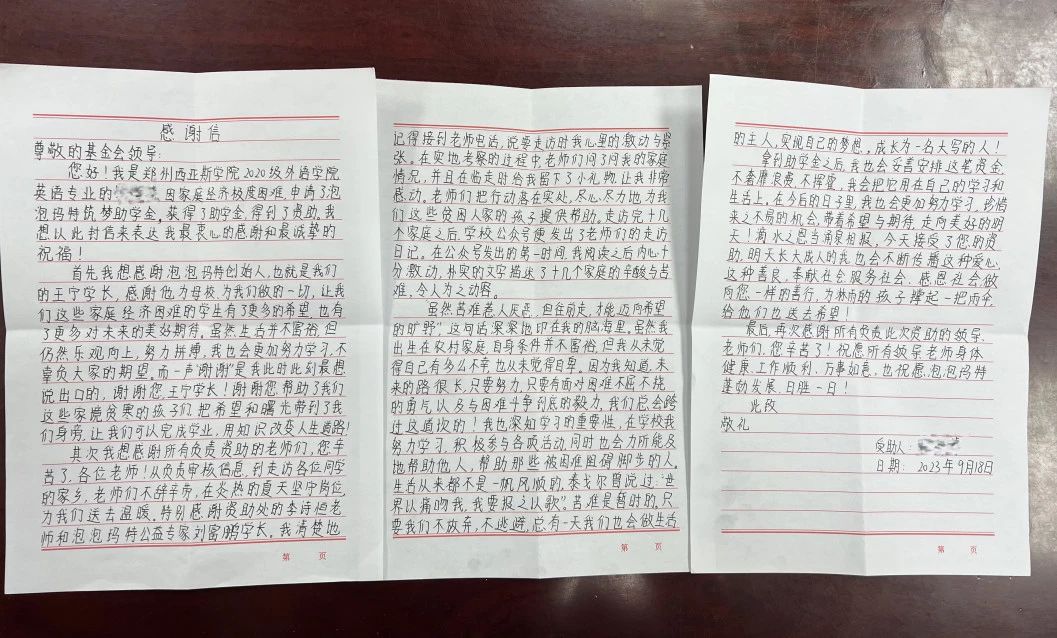 感谢信
尊敬的基金会领导：
您好！我是郑州西亚斯学院2020级外语学院
英语专业的 因家庭经济极度困难，申请了泡
泡玛特筑梦助学金。获得了助学金，得到了资助，我
想以此封信来表达我最衷心的感谢和最诚挚的
祝福！
首先我想感谢泡泡玛特创始人，也就是我们
的王宁学长，感谢他为母校，为我们做的一切，让我
们这些家庭经济困难的学生有了更多的希望，也有
了更多对未来的美好期待。虽然生活并不富裕，但
仍然乐观向上，努力拼搏，我也会更加努力学习，不
辜负大家的期望。而一声"谢谢"是我此时此刻最想
说出口的，谢谢您，王宁学长！谢谢您帮助了我们
这些家境贫寒的孩子们，把希望和曙光带到了我
们身旁，让我们可以完成学业，用知识改变人生道路！
其次我想感谢所有负责资助的老师们，您辛
苦了，各位老师！从负责审核信息，到走访各位同学
的家乡，老师们不辞辛劳，在炎热的夏天坚守岗位，
为我们送去温暖。特别感谢资助处的李诗恒老
师和泡泡玛特公益专家刘富鹏学长。我清楚地
第 页
记得接到老师电话，说要走访时我心里的激动与紧
张。在实地考察的过程中，老师们问了问我的家庭
情况，并且在临走时给我留下了小礼物，让我非常
感动。老师们把行动落在实处，尽心、尽力地为我
们这些贫困人家的孩子提供帮助。走访完十几
个家庭之后，学校公众号便发出了老师们的走访
日记。在公众号发出的第一时间，我阅读之后内心十
分激动，朴实的文字描述了十几个家庭的辛酸与苦
难，令人为之动容。
虽然苦难惹人厌恶，但往前走，才能迈向希望
的旷野"这句话深深地印在我的脑海里。虽然我
出生在农村家庭，自身条件并不富裕，但我从未觉
得自己有多么不幸，也从未觉得自卑。因为我知道，未
来的路很长，只要努力，只要有面对困难不屈不挠
的勇气，以及与困难斗争到底的毅力，我们总会跨
过这道坎的！我也深知学习的重要性，在学校我
努力学习，积极参与各项活动，同时也会力所能及
地帮助他人，帮助那些被困难阻碍脚步的人。
生活从来都不是一帆风顺的，泰戈尔曾说过："世
界以痛吻我，我要报之以歌"。苦难是暂时的，只
要我们不放弃，不逃避，总有一天我们也会做生活
第 页
的主人，实现自己的梦想，成长为一名大写的人！
拿到助学金之后，我也会妥善安排这笔资金，
不奢靡浪费，不挥霍，我会把它用在自己的学习和
生活上。在今后的日子里，我也会更加努力学习，珍惜
来之不易的机会，带着希望与期待，走向美好的明
天！滴水之恩当涌泉相报，今天接受了您的资
助，明天长大成人的我也会不断传播这种爱心，
这种善良，奉献社会，服务社会，感恩社会，做
向您一样的善行，为淋雨的孩子撑起一把雨伞，
给他们也送去希望！
最后，再次感谢所有负责此次资助的领导、
老师们，您辛苦了！祝愿所有领导老师身体
健康，工作顺利，万事如意，也祝愿泡泡玛特
蓬勃发展，日胜一日！
此致
敬礼
受助人：
日期：2023年9月18日
第 页